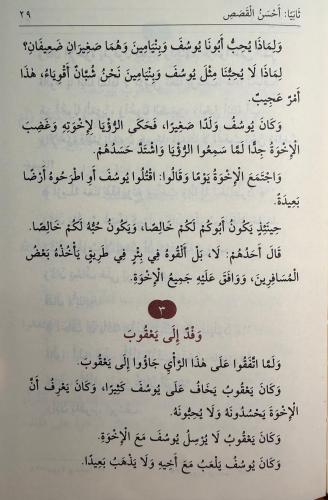 ثَانِيًا: أَحْسَنُ الْقَصَصِ ٢٩
وَلِمَاذَا يُحِبُّ أَبُونَا يُوسُفَ وَبِنْيَامِينَ وَهُمَا صَغِيرَانِ ضَعِيفَانِ؟
لِمَاذَا لَا يُحِبُّنَا مِثْلَ يُوسُفَ وَبِنْيَامِينَ نَحْنُ شُبَّانٌ أَقْوِيَاءُ، هَذَا
أَمْرٌ عَجِيبٌ.
وَكَانَ يُوسُفُ وَلَدًا صَغِيرًا، فَحَكَى الرُّؤْيَا لِإِخْوَتِهِ وَغَضِبَ
الْإِخْوَةُ جِدًّا لَمَّا سَمِعُوا الرُّؤْيَا وَاشْتَدَّ حَسَدُهُمْ.
وَاجْتَمَعَ الْإِخْوَةُ يَوْمًا وَقَالُوا: اقْتُلُوا يُوسُفَ أَوِ اطْرَحُوهُ أَرْضًا
بَعِيدَةً.
حِينَئِذٍ يَكُونُ أَبُوكُمْ لَكُمْ خَالِصًا، وَيَكُونُ حُبُّهُ لَكُمْ خَالِصًا.
قَالَ أَحَدُهُمْ: لَا، بَلْ أَلْقُوهُ فِي بِئْرٍ فِي طَرِيقٍ يَأْخُذْهُ بَعْضُ
الْمُسَافِرِينَ، وَوَافَقَ عَلَيْهِ جَمِيعُ الْإِخْوَةِ.
٣
وَفْدٌ إِلَى يَعْقُوبَ
وَلَمَّا اتَّفَقُوا عَلَى هَذَا الرَّأْيِ جَاؤُوا إِلَى يَعْقُوبَ.
وَكَانَ يَعْقُوبُ يَخَافُ عَلَى يُوسُفَ كَثِيرًا، وَكَانَ يَعْرِفُ أَنَّ
الْإِخْوَةَ يَحْسُدُونَهُ وَلَا يُحِبُّونَهُ.
وَكَانَ يَعْقُوبُ لَا يُرْسِلُ يُوسُفَ مَعَ الْإِخْوَةِ.
وَكَانَ يُوسُفُ يَلْعَبُ مَعَ أَخِيهِ وَلَا يَذْهَبُ بَعِيدًا.